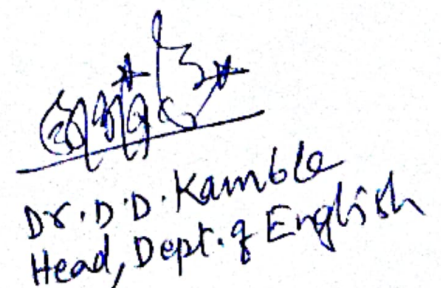 Dr. D. D. Kamble
Head, Dept. of English